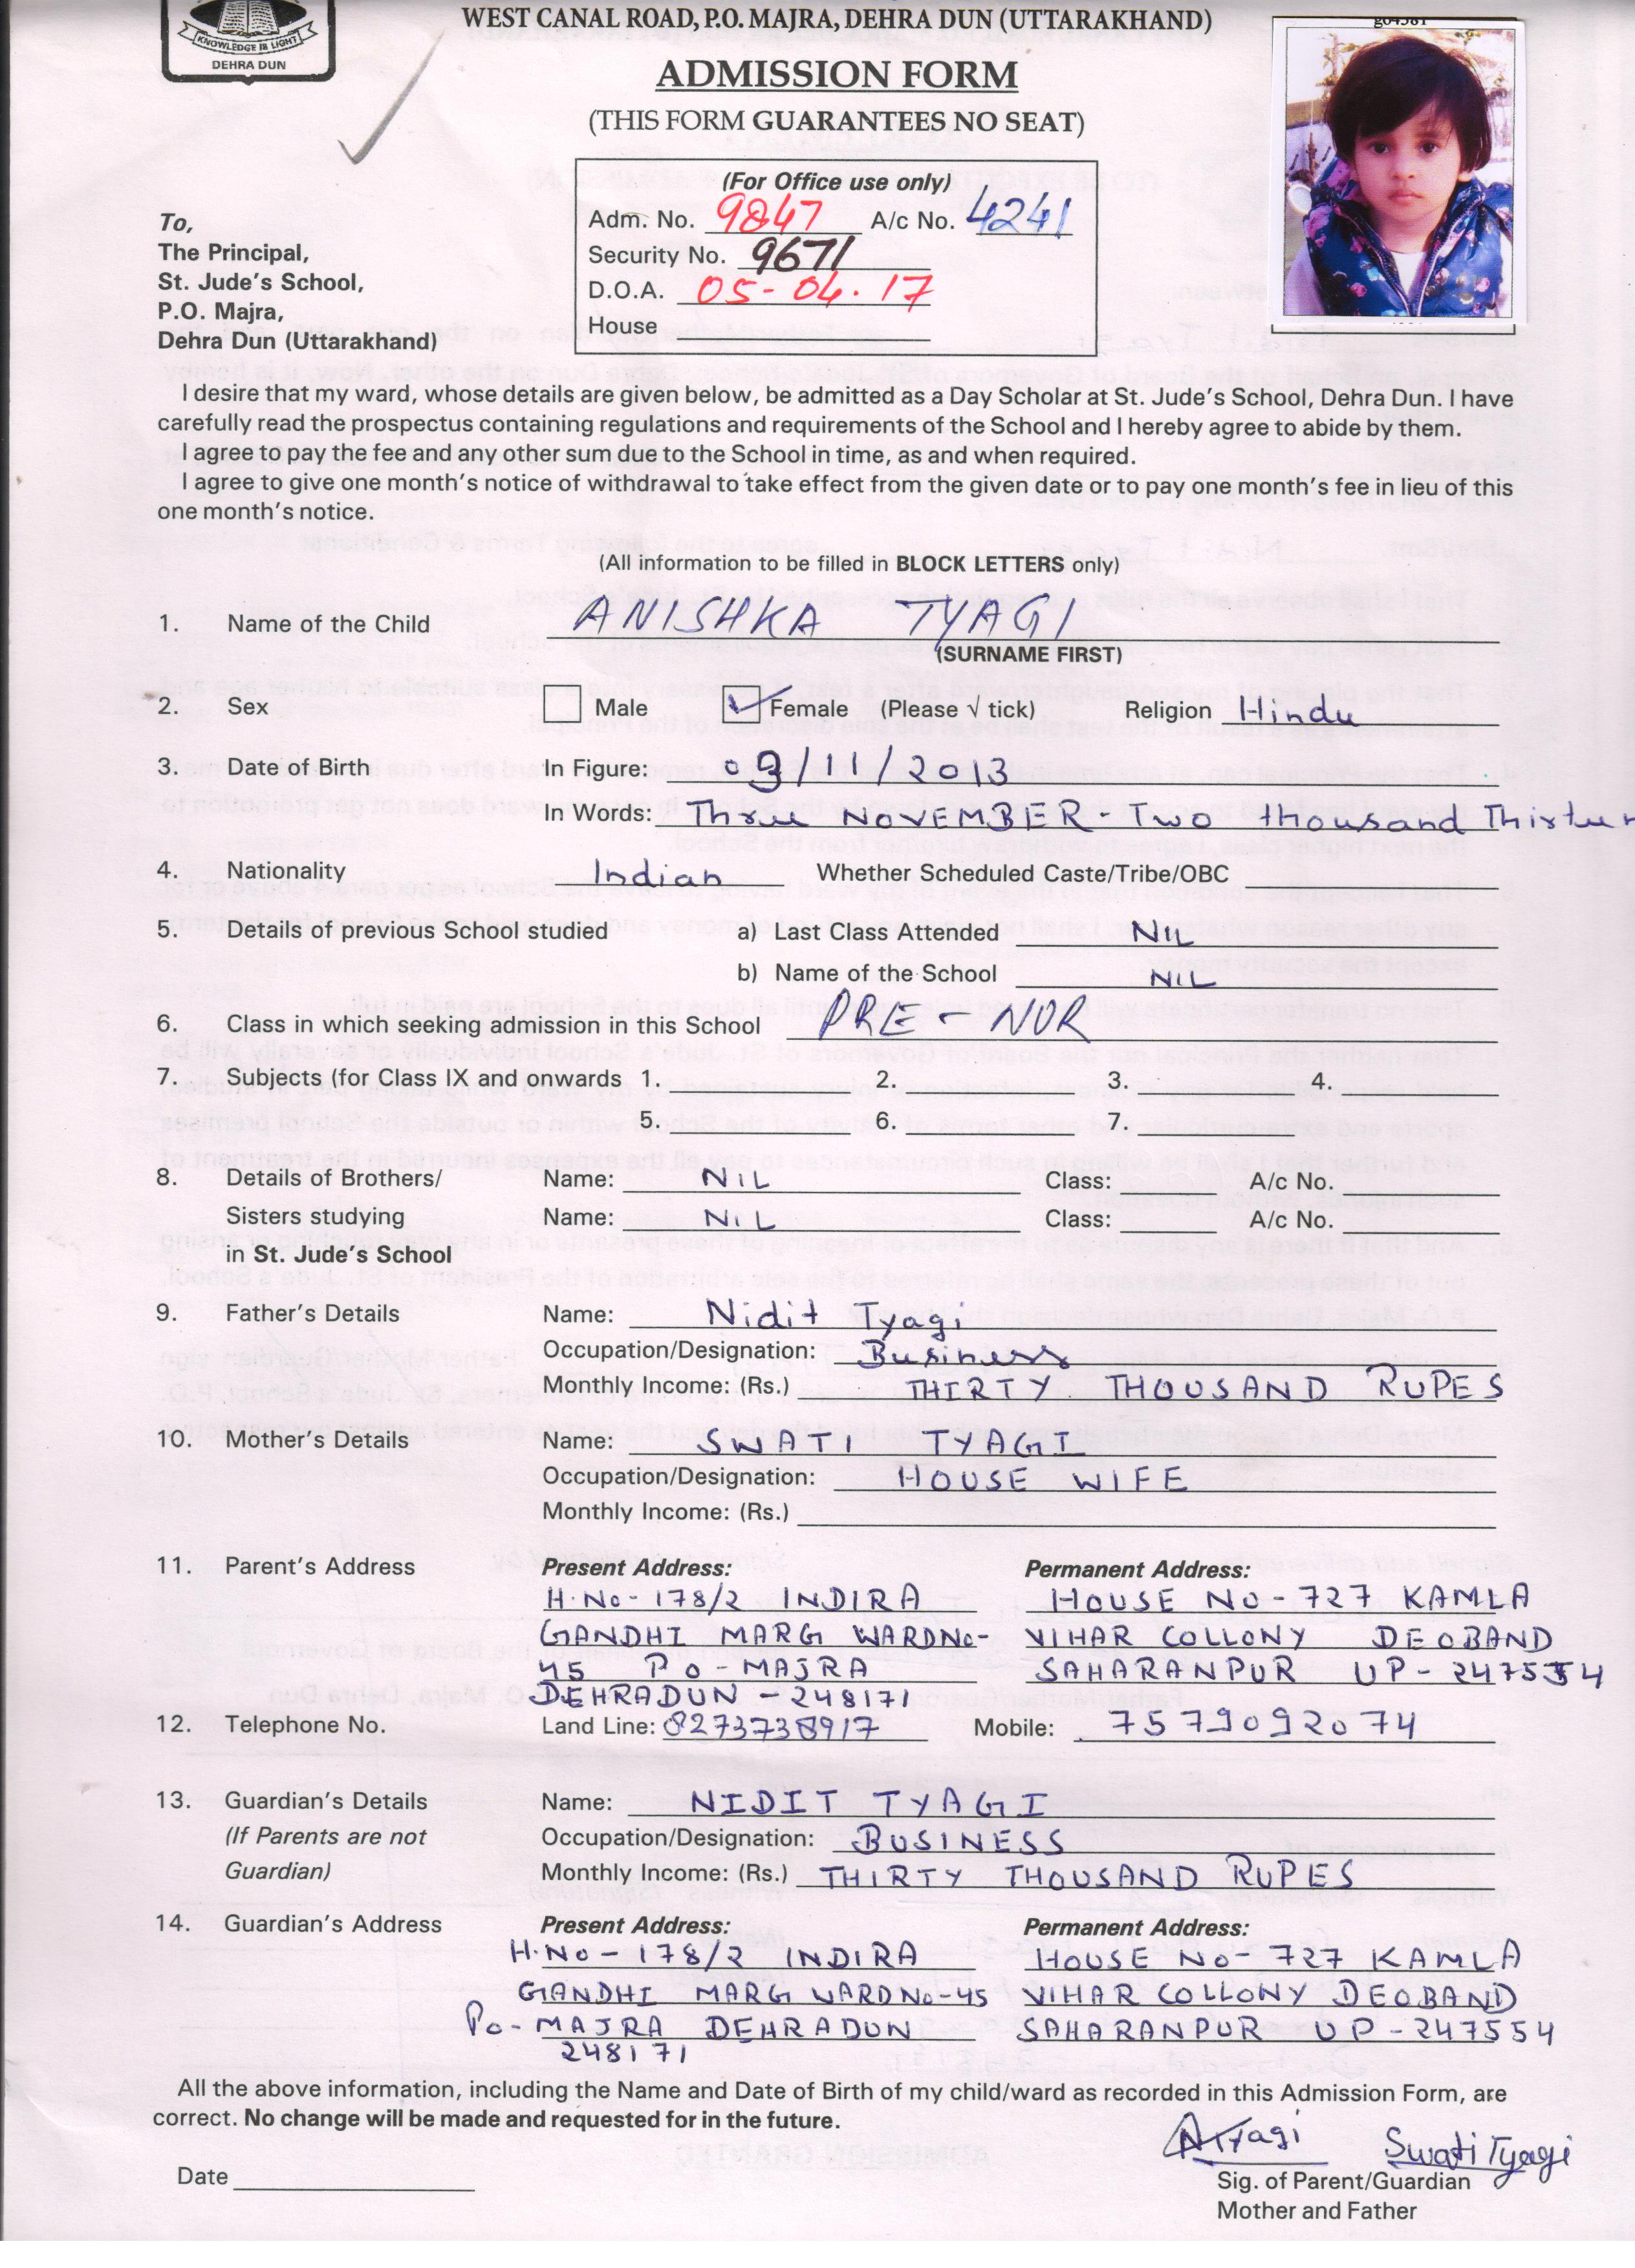 KNOWLEDGE IS LIGHT
DEHRA DUN
WEST CANAL ROAD, P.O. MAJRA, DEHRA DUN (UTTARAKHAND)
ADMISSION FORM
(THIS FORM GUARANTEES NO SEAT)
(For Office use only)
Adm. No. 9847 A/c No. 4241
Security No. 9671
D.O.A. 05-04.17
House
To,
The Principal,
St. Jude's School,
P.O. Majra,
Dehra Dun (Uttarakhand)
I desire that my ward, whose details are given below, be admitted as a Day Scholar at St. Jude's School, Dehra Dun. I have
carefully read the prospectus containing regulations and requirements of the School and I hereby agree to abide by them.
I agree to pay the fee and any other sum due to the School in time, as and when required.
I agree to give one month's notice of withdrawal to take effect from the given date or to pay one month's fee in lieu of this
one month's notice.
(All information to be filled in BLOCK LETTERS only)
1. Name of the Child ANISHKA TYAGI
(SURNAME FIRST)
2. Sex Male Female (Please √ tick) Religion Hindu
3. Date of Birth In Figure: 03/11/2013
In Words: Three NOVEMBER - Two thousand Thirteen
4. Nationality Indian Whether Scheduled Caste/Tribe/OBC
5. Details of previous School studied a) Last Class Attended NIL
b) Name of the School NIL
6. Class in which seeking admission in this School PRE - NUR
7. Subjects (for Class IX and onwards 1. 2. 3. 4.
5. 6. 7.
8. Details of Brothers/ Name: NIL Class: A/c No.
Sisters studying Name: NIL Class: A/c No.
in St. Jude's School
9. Father's Details Name: Nidit Tyagi
Occupation/Designation: Business
Monthly Income: (Rs.) THIRTY THOUSAND RUPES
10. Mother's Details Name: SWATI TYAGI
Occupation/Designation: HOUSE WIFE
Monthly Income: (Rs.)
11. Parent's Address Present Address: Permanent Address:
H.No- 178/2 INDIRA HOUSE NO-727 KAMLA
GANDHI MARG WARDNo- VIHAR COLLONY DEOBAND
45 PO-MAJRA SAHARANPUR UP-247554
DEHRADUN-248171
12. Telephone No. Land Line: 8273738917 Mobile: 7579092074
13. Guardian's Details Name: NIDIT TYAGI
(If Parents are not Occupation/Designation: BUSINESS
Guardian) Monthly Income: (Rs.) THIRTY THOUSAND RUPES
14. Guardian's Address Present Address: Permanent Address:
H.No-178/2 INDIRA HOUSE No-727 KAMLA
GANDHI MARG WARDNo-45 VIHAR COLLONY DEOBAND
Po-MAJRA DEHRADUN SAHARANPUR UP-247554
248171
All the above information, including the Name and Date of Birth of my child/ward as recorded in this Admission Form, are
correct. No change will be made and requested for in the future.
NTyagi Swati Tyagi
Date Sig. of Parent/Guardian
Mother and Father